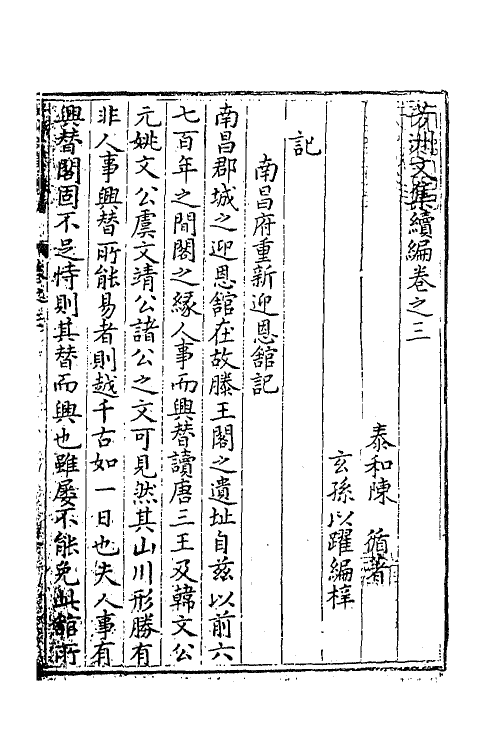 芳洲文集續編卷之三
泰和陳　循著
玄孫以躍編梓
記
南昌府重新迎恩館記
南昌郡城之迎恩舘在故滕王閣之遺址自兹以前六
七百年之間閣之緣人事而興替讀唐三王及韓文公
元姚文公虞文靖公諸公之文可見然其山川形勝有
非人事興替所能易者則越千古如一日也夫人事有
興替閣固不足恃則其替而興也雖屡不能免此舘所